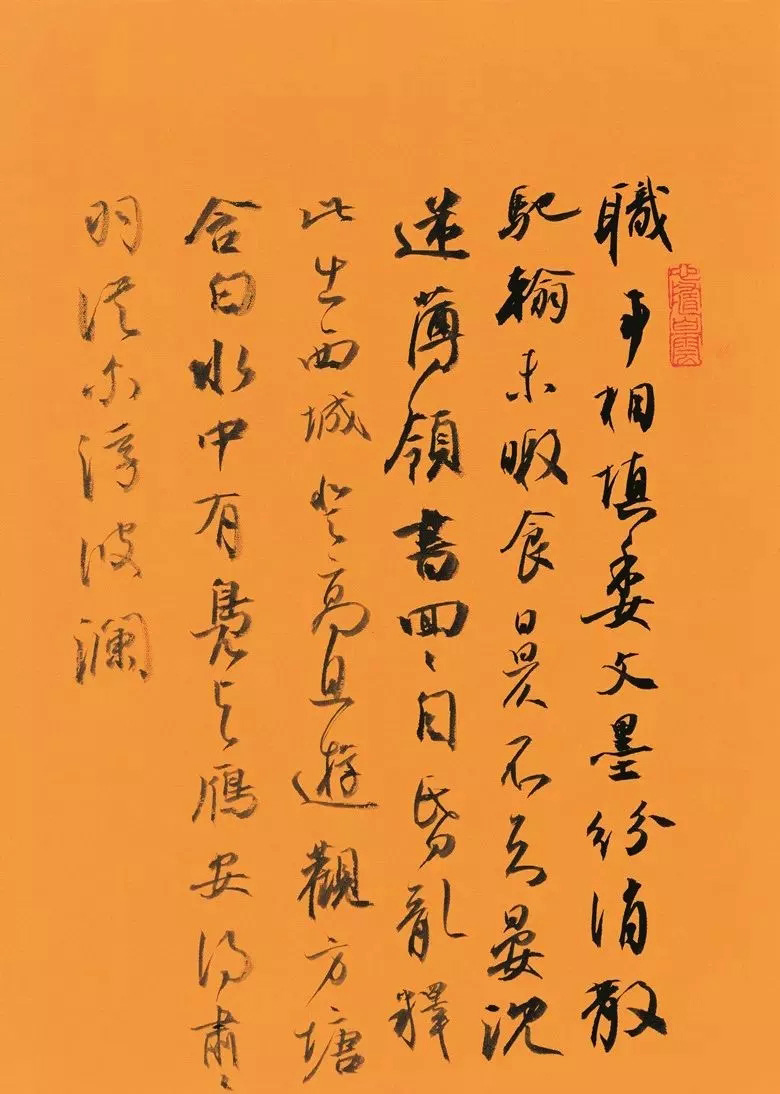 職事相填委文墨紛消散
馳翰未暇食日昃不知晏沈
迷薄領書回〻自昏亂釋
此出西城登高且遊觀方塘
含白水中有鳧与鴈安得肅〻
羽從尔浮波瀾